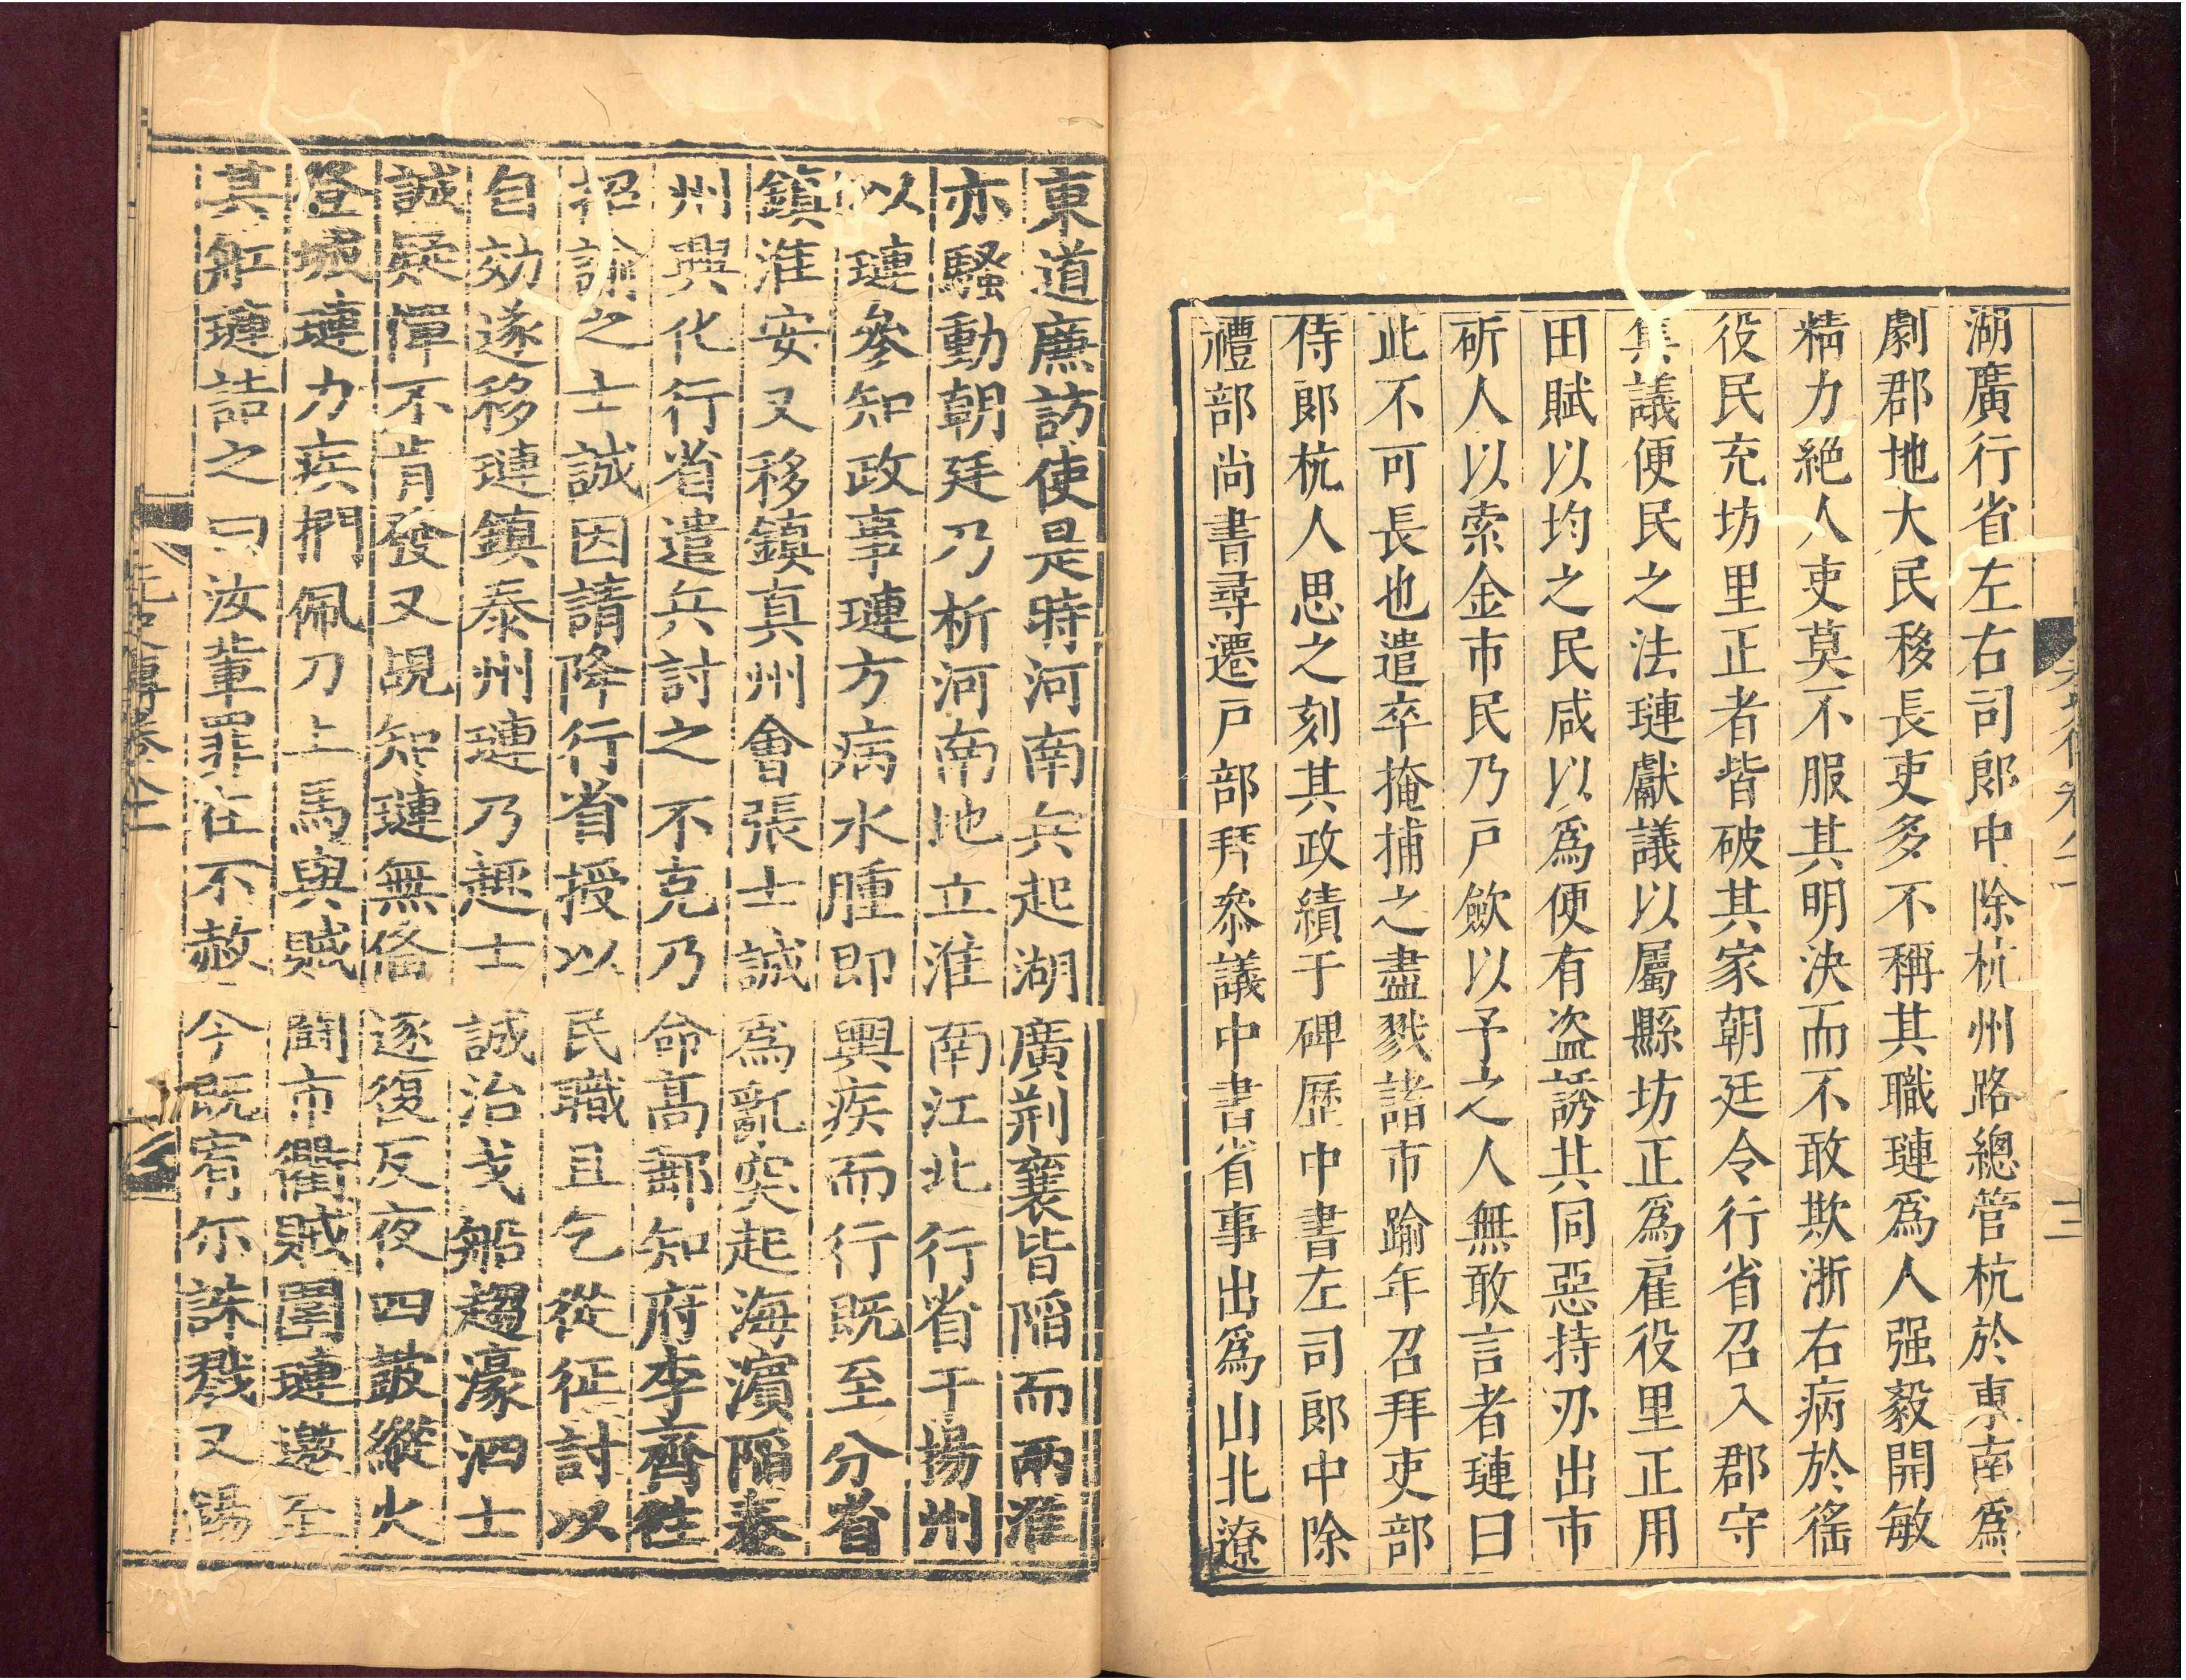 湖廣行省左右司郎中除杭州路總管杭於東南爲
劇郡地大民移長吏多不稱其職璉爲人强毅開敏
精力絶人吏莫不服其明決而不敢欺浙右病於徭
役民充坊里正者皆破其家朝廷令行省召入郡守
集議便民之法璉獻議以屬縣坊正爲雇役里正用
田賦以均之民咸以爲便有盗誘其同惡持刃出市
斫人以索金市民乃戸歛以予之人無敢言者璉曰
此不可長也遣卒掩捕之盡戮諸市踰年召拜吏部
侍郎杭人思之刻其政績于碑歷中書左司郎中除
禮部尚書尋遷戸部拜叅議中書省事出爲山北遼
東道廉訪使是時河南兵起湖廣荆襄皆陷而兩淮
亦騷動朝廷乃析河南地立淮南江北行省于揚州
以璉參知政事璉方病水腫即輿疾而行既至分省
鎮淮安又移鎮真州會張士誠爲亂突起海濵陷泰
州興化行省遣兵討之不克乃命高郵知府李齊徃
招諭之士誠因請降行省授以民職且乞從征討以
自効遂移璉鎮泰州璉乃趣士誠治戈船趨濠泗士
誠疑憚不肯發又覘知璉無俻遂復反夜四鼓縱火
登城璉力疾捫佩刀上馬與賊鬭市衢賊圍璉邀至
其舩璉詰之曰汝輩罪在不赦今既宥尓誅戮又錫
元史傳卷八十一